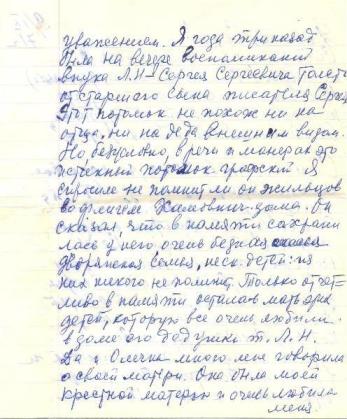 уважением. Я года три назад
была на вечере воспоминаний
внука Л.Н – Сергея Сергеевича Толсто
от старшего сына писателя Сергея
Этот потомок не похож ни на
отца, ни на деда внешним видом.
Но безусловно, в речи и манерах это
истинный потомок графский. Я
спросила не помнит ли он жильцов
во флигеле Хамовнич. дома. Он
сказал, что в памяти сохрани
лась у него очень бедная
дворянская семья, неск. детей: из
них никого не помнит. Только отчет=
ливо в памяти осталась мать этих
детей, которую все очень любили
в доме его дедушки т. Л. Н.
Да и Олечка много мне говорила
о своей матери. Она была моей
крестной матерью и очень любила
меня.